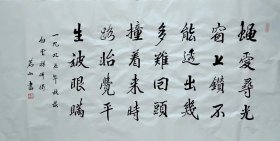 蠅愛尋光
窗上鑽不
能透出幾
多難回頭
撞着來時
路始覺平
生被眼瞞
一九九五年秋
白雲禪師偈
山書